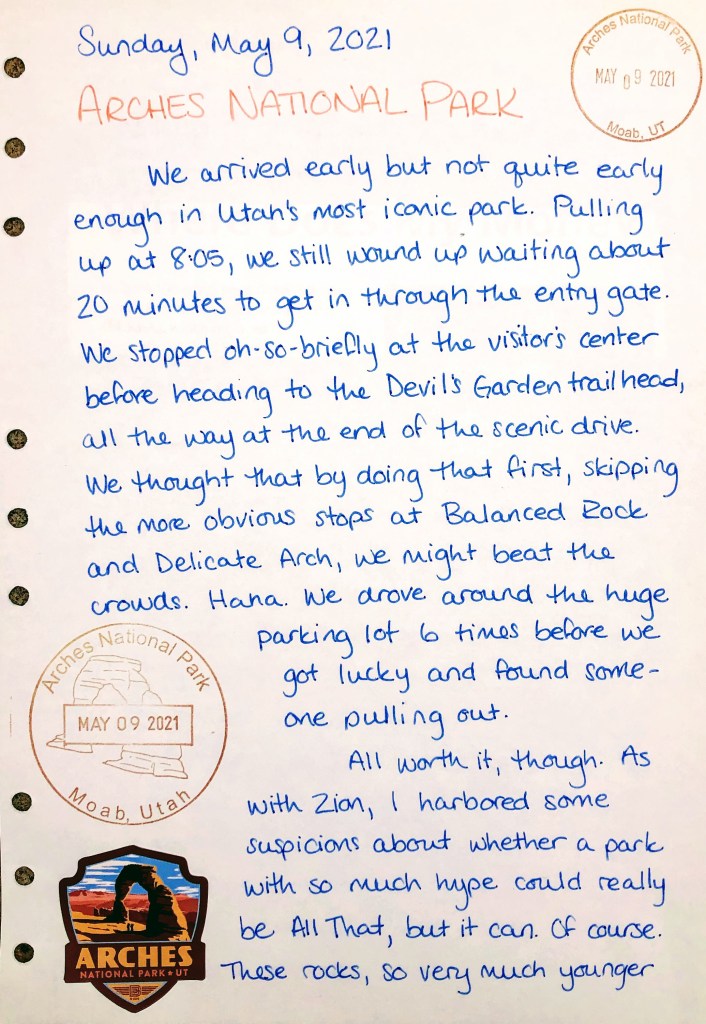 Sunday, May 9, 2021
Arches National Park
MAY 09 2021
Moab, UT
ARCHES NATIONAL PARK
We arrived early but not quite early
enough in Utah's most iconic park. Pulling
up at 8:05, we still wound up waiting about
20 minutes to get in through the entry gate.
We stopped oh-so-briefly at the visitor's center
before heading to the Devil's Garden trailhead,
all the way at the end of the scenic drive.
We thought that by doing that first, skipping
the more obvious stops at Balanced Rock
and Delicate Arch, we might beat the
crowds. Haha. We drove around the huge
parking lot 6 times before we
got lucky and found some-
one pulling out.
Arches National Park
MAY 09 2021
Moab, Utah
All worth it, though. As
with Zion, I harbored some
suspicions about whether a park
with so much hype could really
be All That, but it can. Of course.
These rocks, so very much younger
ARCHES
NATIONAL PARK UT